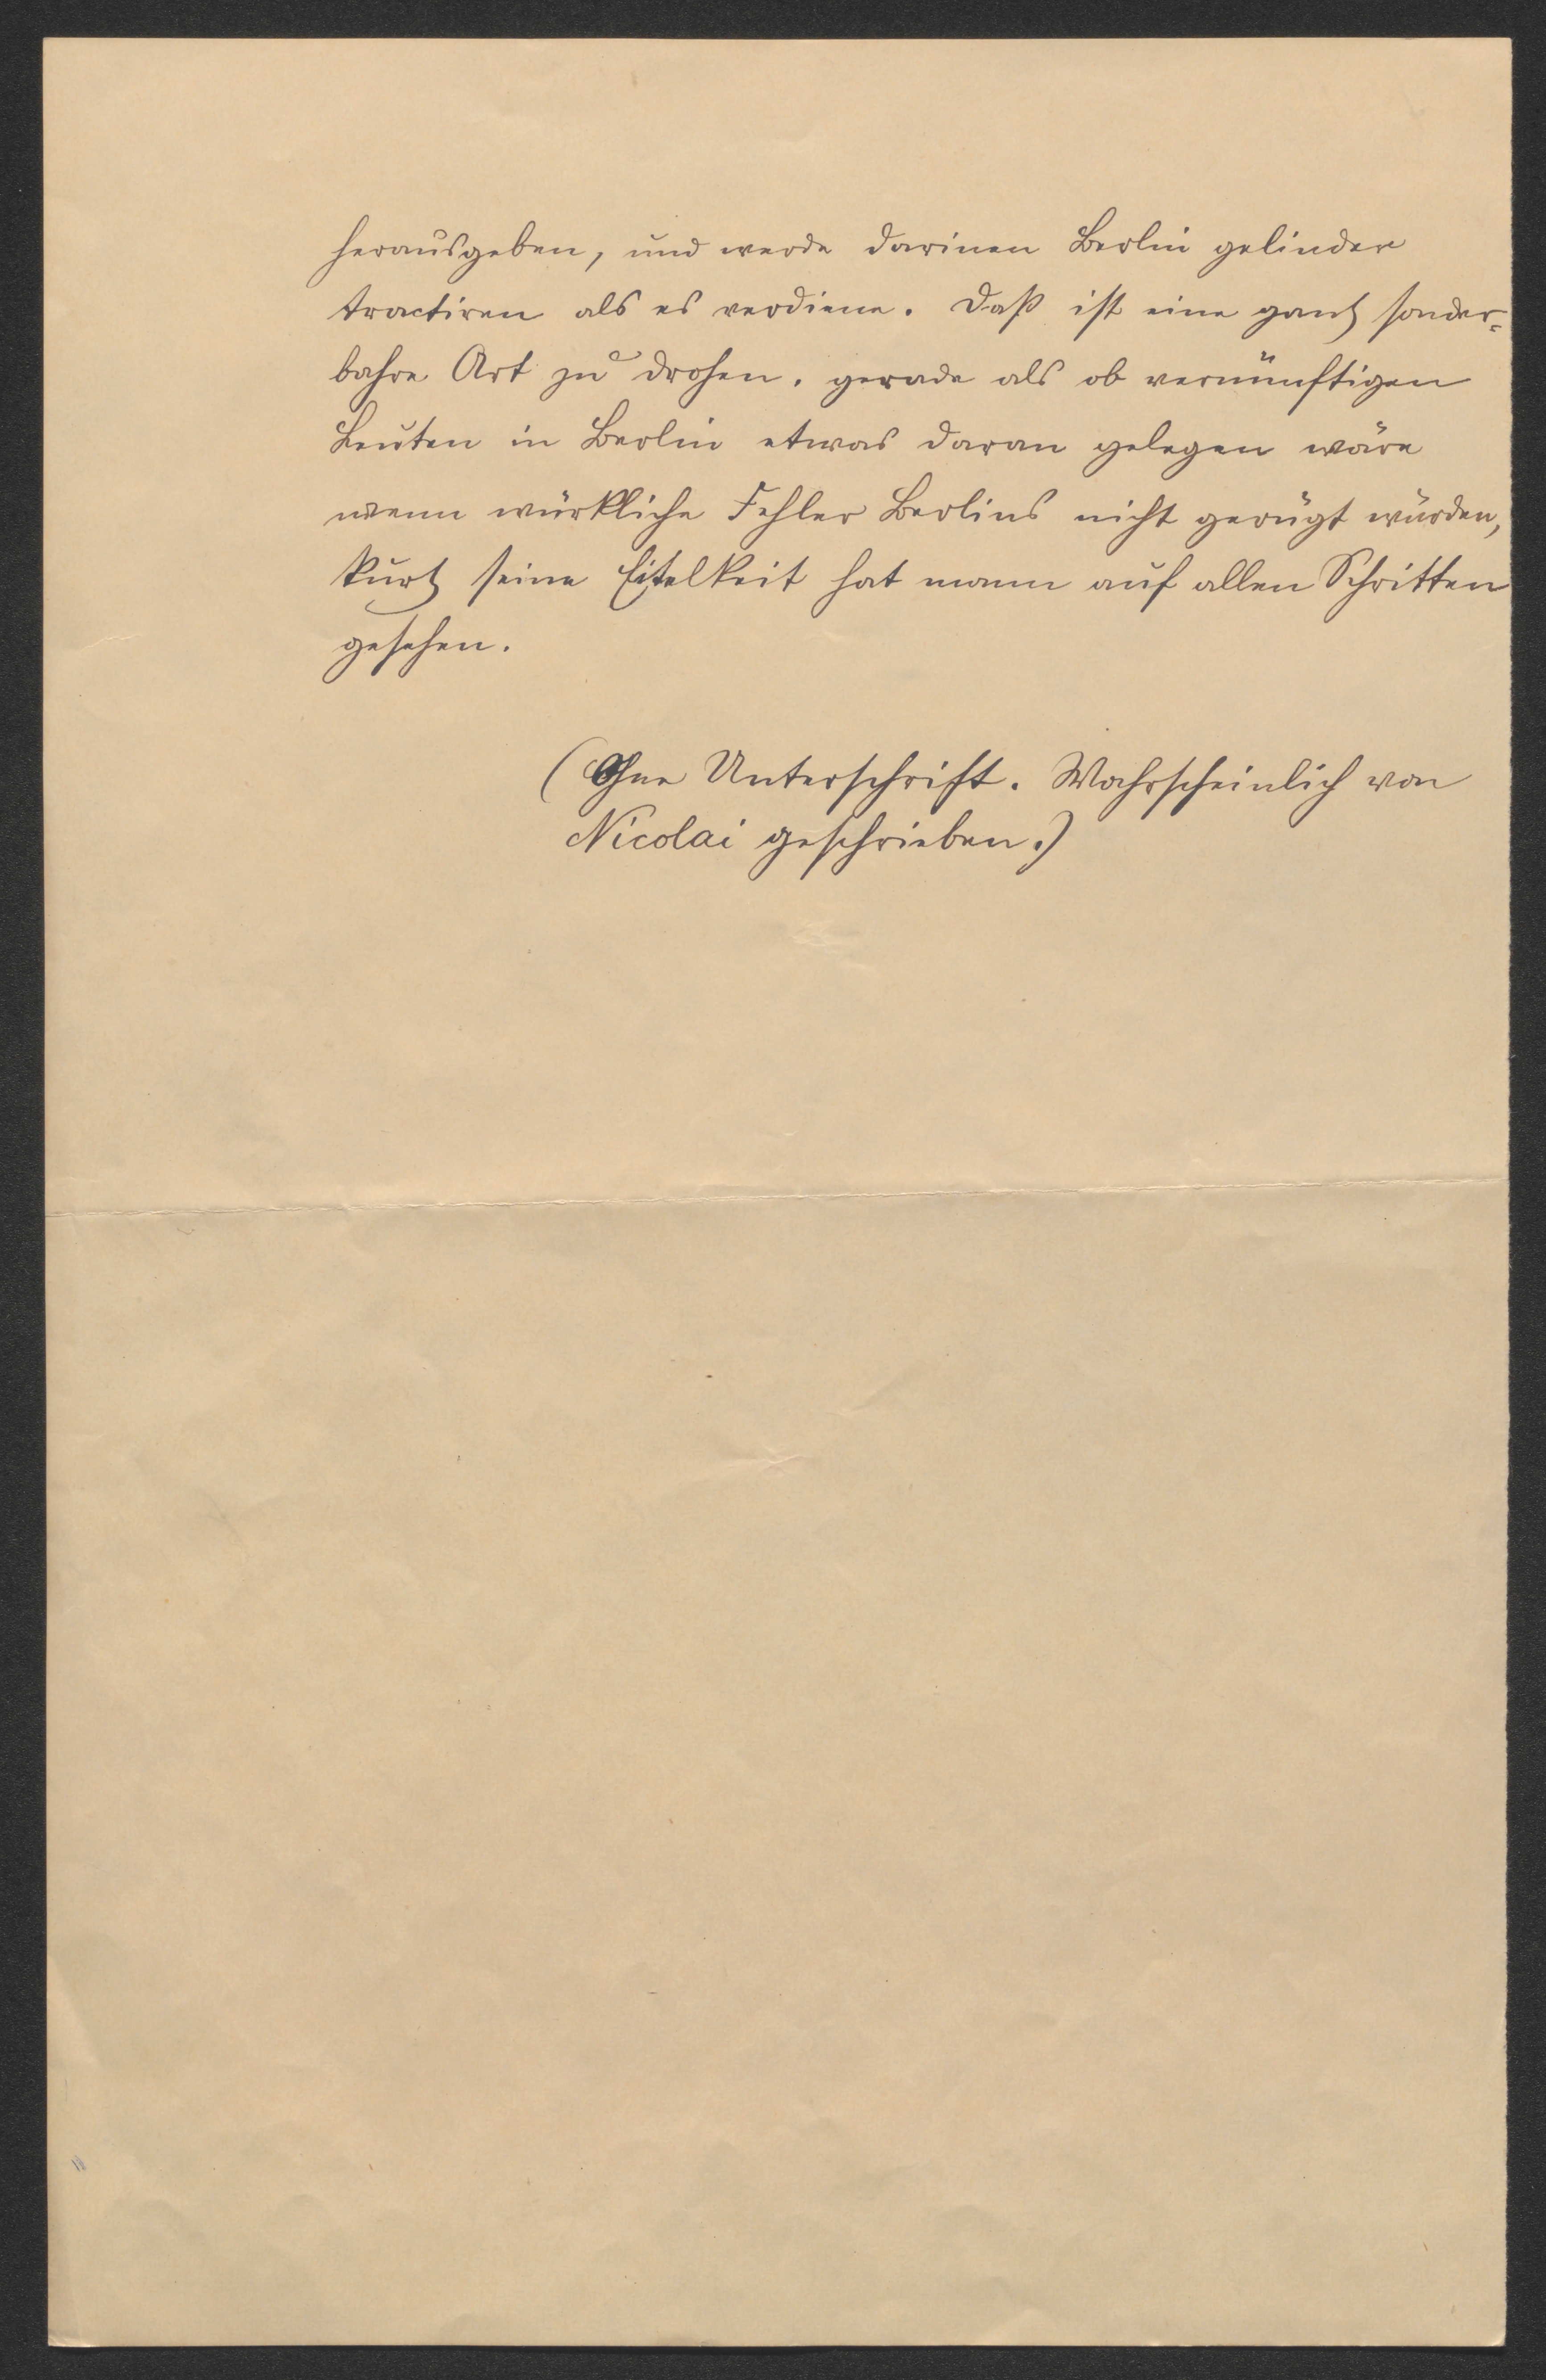 herausgeben, und werde darinen Berlin gelinder
tractiren als es verdiene. Daß ist eine gantz sonder-
bahre Art zu drohen, gerade als ob vernünftigen
Leuten in Berlin etwas daran gelegen wäre
wenn würkliche Fehler Berlins nicht gerügt würden,
kurtz seine Eitelkeit hat mann auf allen Schritten
gesehen.
(Ohne Unterschrift. Wahrscheinlich von
Nicolai geschrieben.)